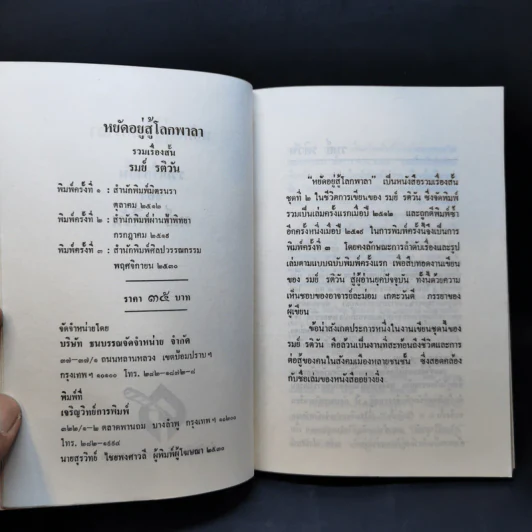 หยัดอยู่สู้โลกพาลา
รวมเรื่องสั้น
รมย์ รติวัน
พิมพ์ครั้งที่ ๑ : สำนักพิมพ์มิตรนรา
ตุลาคม ๒๕๑๒
พิมพ์ครั้งที่ ๒ : สำนักพิมพ์ผ่านฟ้าพิทยา
กรกฎาคม ๒๕๑๙
พิมพ์ครั้งที่ ๓ : สำนักพิมพ์ศิลปวรรณกรรม
พฤศจิกายน ๒๕๓๐
ราคา ๓๕ บาท
จัดจำหน่ายโดย
บริษัท ธนบรรณจัดจำหน่าย จำกัด
๓๗-๓๗/๑ ถนนหลานหลวง เขตป้อมปราบฯ
กรุงเทพฯ ๑๐๑๐๐ โทร.
พิมพ์ที่
เจริญวิทย์การพิมพ์
๓๒๒/๑-๒ ตลาดพานถม บางลำพู กรุงเทพฯ ๑๐๒๐๐
โทร.
นายสุรวิทย์ ไชยพงศาวลี ผู้พิมพ์ผู้โฆษณา ๒๕๓๐
"หยัดอยู่สู้โลกพาลา" เป็นหนังสือรวมเรื่องสั้น
ชุดที่ ๒ ในชีวิตการเขียนของ รมย์ รติวัน ซึ่งจัดพิมพ์
รวมเป็นเล่มครั้งแรกเมื่อปี ๒๕๑๒ และถูกตีพิมพ์ซ้ำ
อีกครั้งหนึ่งเมื่อปี ๒๕๑๙ ในการพิมพ์ครั้งนี้จึงเป็นการ
พิมพ์ครั้งที่ ๓ โดยคงลักษณะการลำดับเรื่องและรูป
เล่มตามแบบฉบับพิมพ์ครั้งแรก เพื่อสืบทอดงานเขียน
ของ รมย์ รติวัน สู่ผู้อ่านยุคปัจจุบัน ทั้งนี้ด้วยความ
เห็นชอบของอาจารย์ละม่อม เกตะวันดี ภรรยาของ
ผู้เขียน
ข้อน่าสังเกตประการหนึ่งในงานเขียนชุดนี้ของ
รมย์ รติวัน คือล้วนเป็นงานที่สะท้อนถึงชีวิตและการ
ต่อสู้ของคนในสังคมเมืองหลายชนชั้น ซึ่งสอดคล้อง
กับชื่อเล่มของหนังสืออย่างยิ่ง